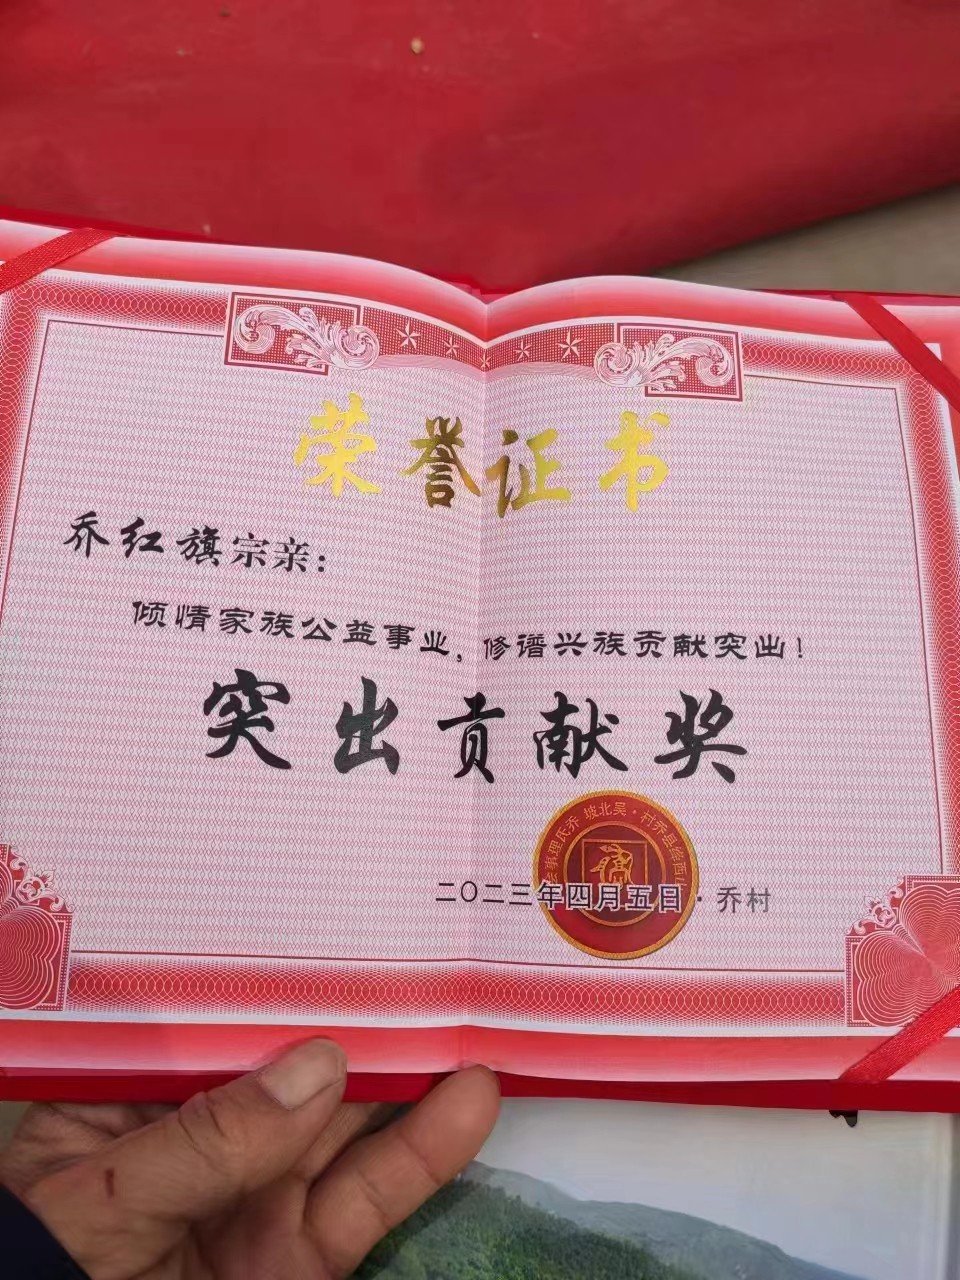 荣誉证书
乔红旗宗亲：
倾情家族公益事业，修谱兴族贡献突出！
突出贡献奖
村乔县绛西 · 吴北坡 乔氏理事会
二〇二三年四月五日 · 乔村